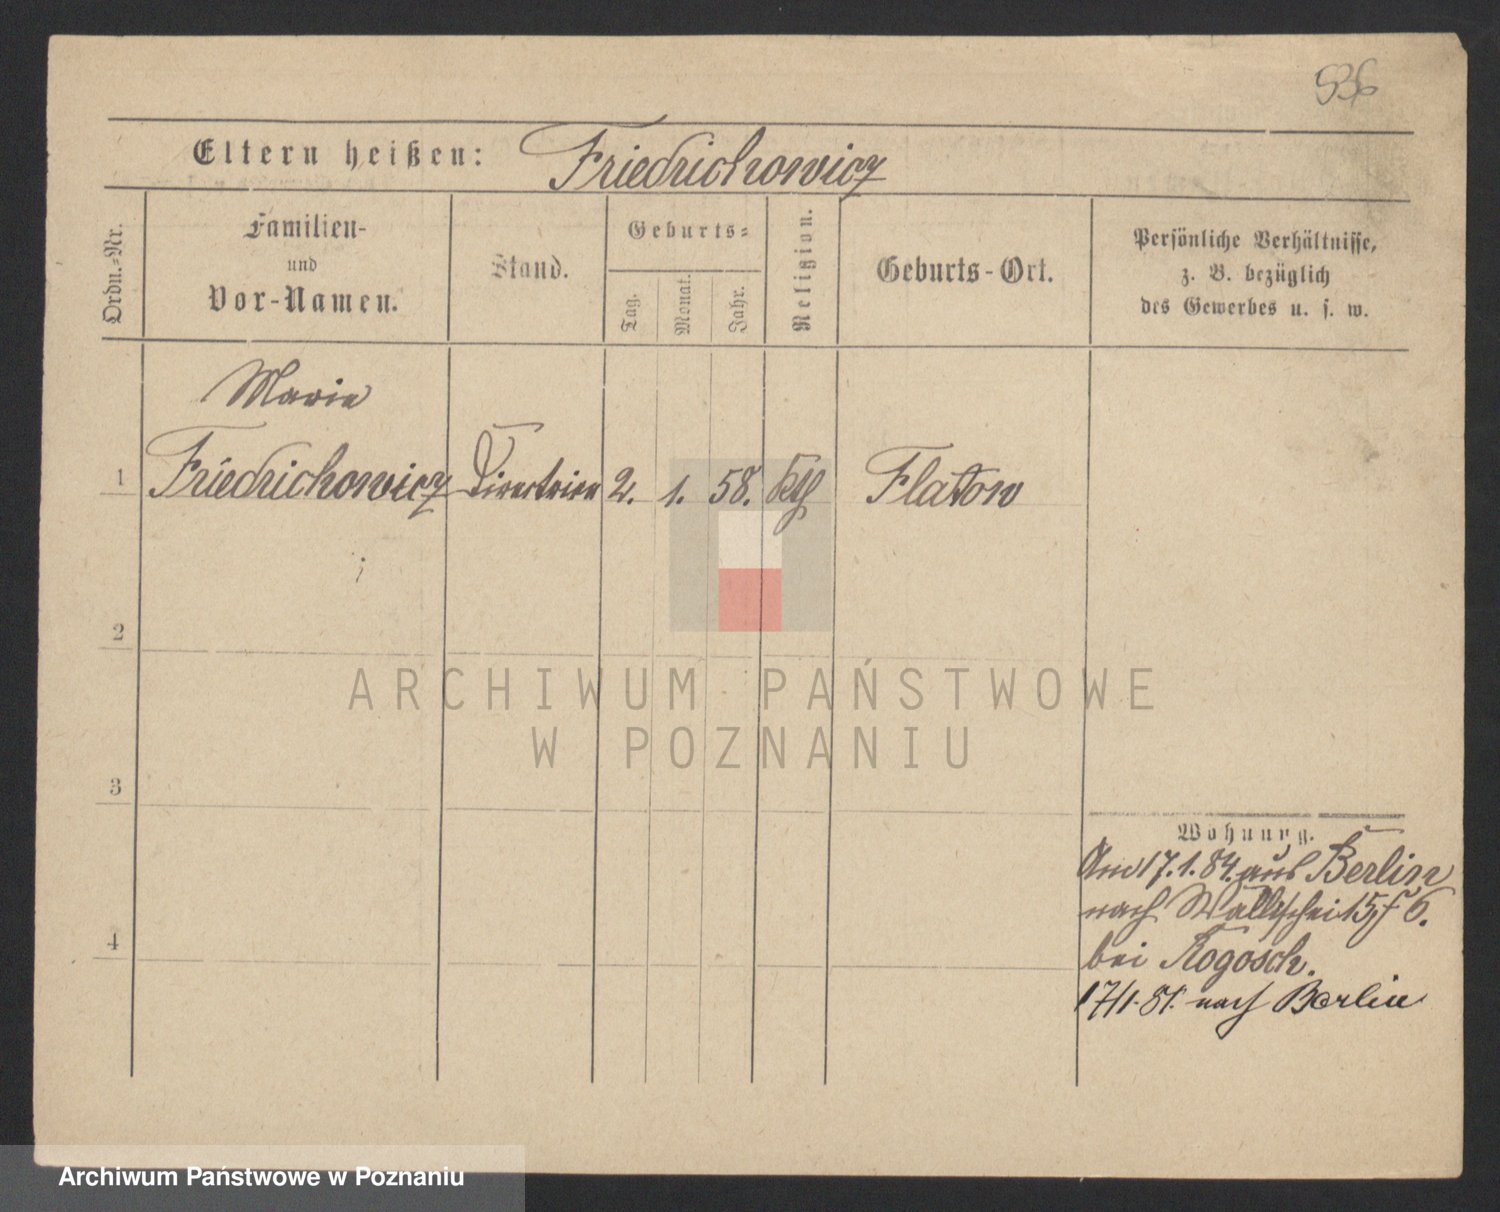 536
Eltern heißen: Friedrichowicz
Ordn.-Nr.
Familien-
und
Vor-Namen.
Stand.
Geburts-
Tag.
Monat.
Jahr.
Religion.
Geburts-Ort.
Persönliche Verhältnisse,
z. B. bezüglich
des Gewerbes u. s. w.
Marie
1 Friedrichowicz Directrice 2. 1. 58. kth Flatow
2
ARCHIWUM PAŃSTWOWE
W POZNANIU
3
Wohnung.
Am 17.1.84. aus Berlin
nach Wallischei 15/ 6.
4
bei Rogosch.
17/1. nach Berlin
Archiwum Państwowe w Poznaniu